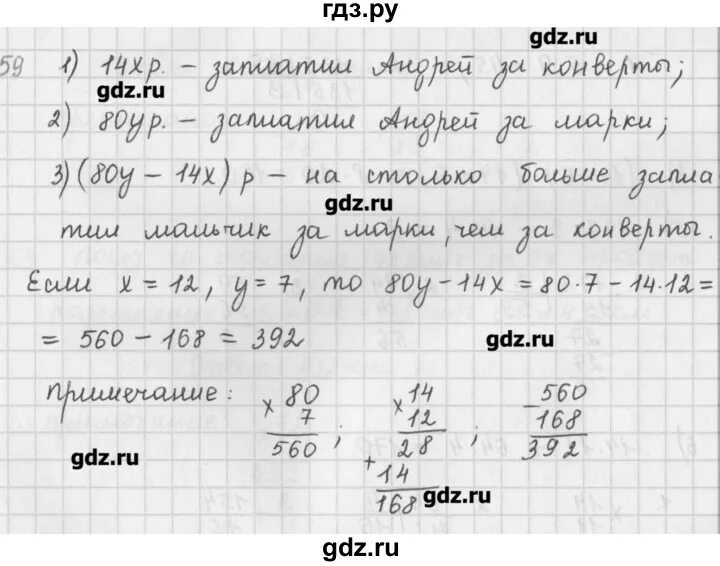 гдз.ру
gdz.ru
59 1) 14xр. – заплатил Андрей за конверты;
gdz.ru
2) 80yр. – заплатил Андрей за марки;
3) (80y – 14x) р – на столько больше запла-
gdz.ru
тил мальчик за марки, чем за конверты.
Если x = 12, y = 7, то 80y – 14x = 80·7 – 14·12 =
= 560 – 168 = 392
gdz.ru
Примечание: × 80 × 14 – 560
7 12 168
560 ; 28 ; 392
gdz.ru
+ 14
168
gdz.ru
gdz.ru